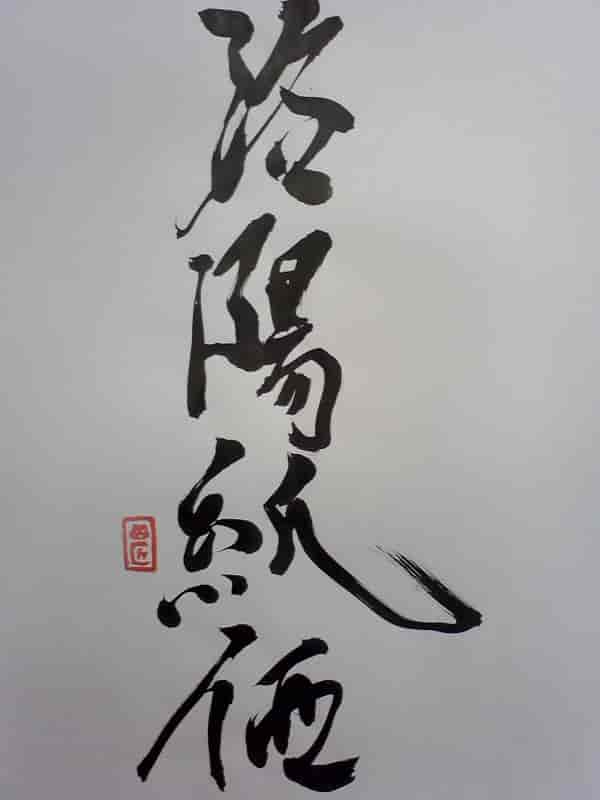 洛陽紙価